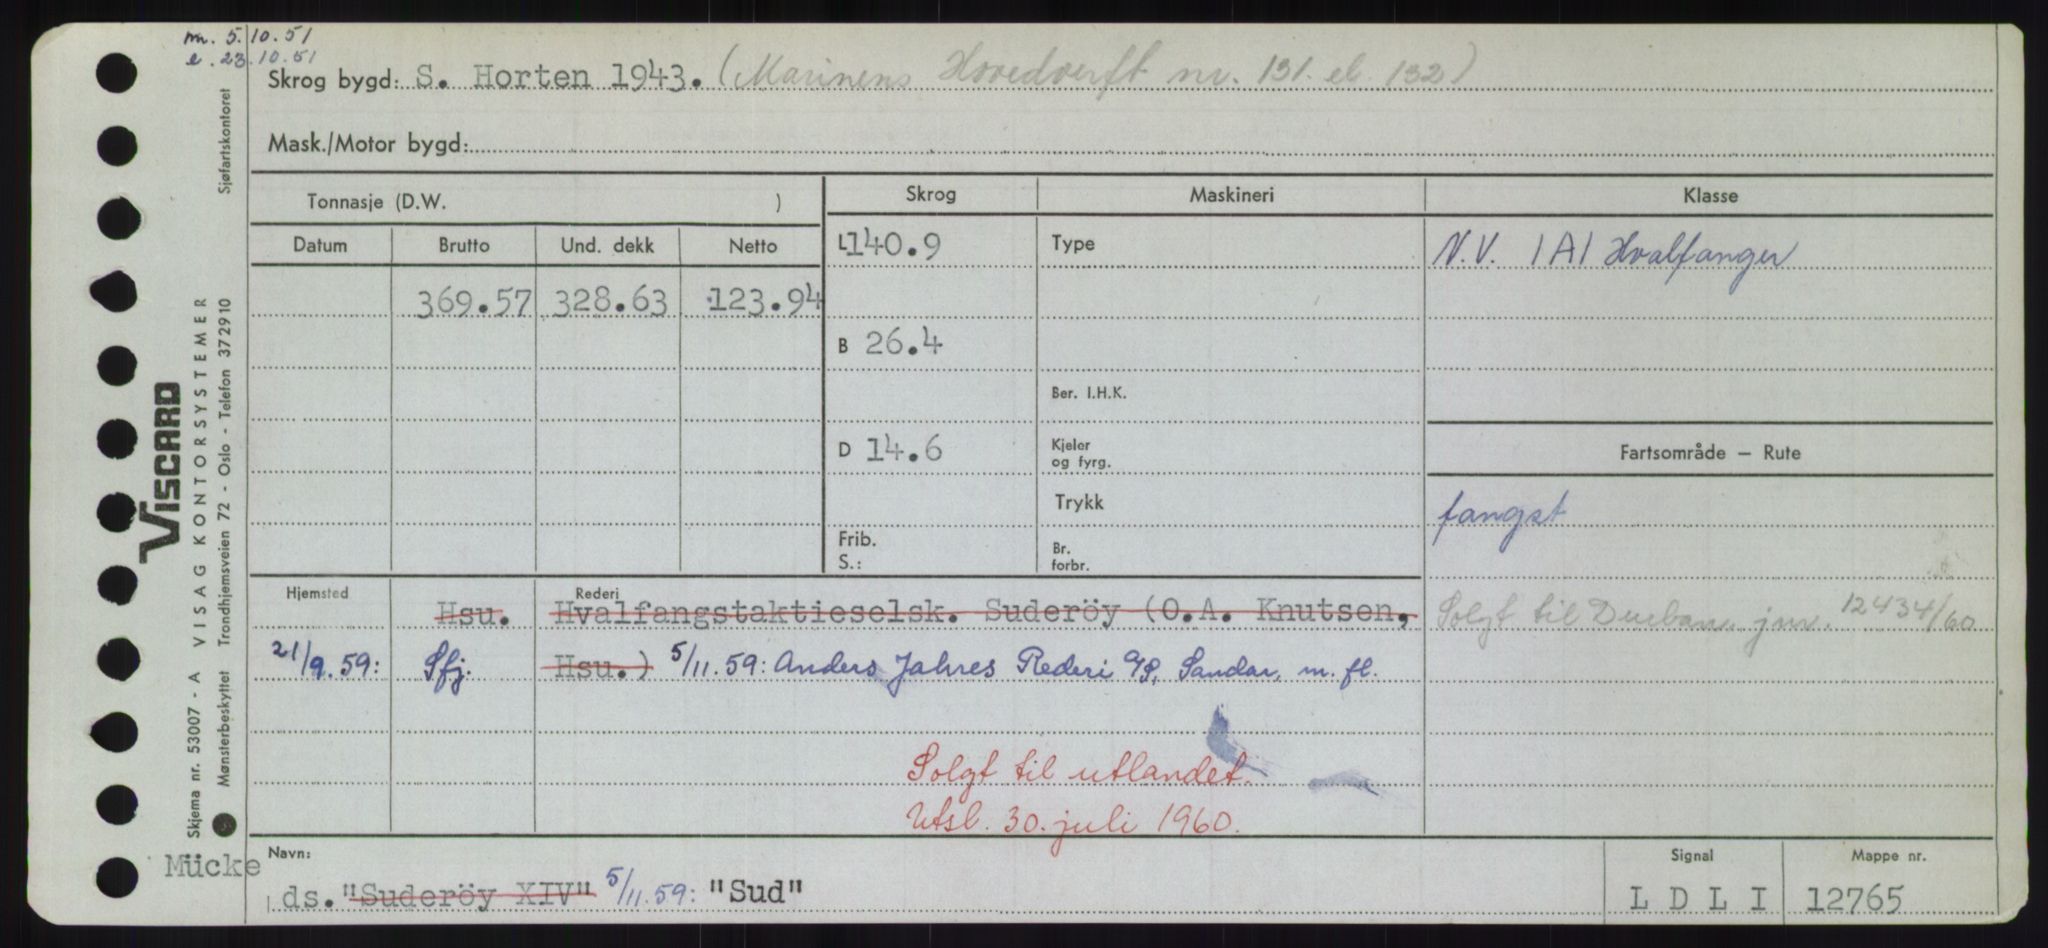 m. 5.10.51
e. 23.10.51
Skrog bygd: S. Horten 1943. (Marinens Hovedverft nr. 131. el. 132)
Mask./Motor bygd:
Tonnasje (D.W. )
Skrog Maskineri Klasse
Datum Brutto Und. dekk Netto
L 140.9 Type N.V. 1A1 Hvalfanger
369.57 328.63 123.94
B 26.4
Ber. I.H.K.
D 14.6 Kjeler og fyrg.
Fartsområde — Rute
Trykk
fangst
Frib.
S.:
Br. forbr.
Hjemsted Rederi
Hsu. Hvalfangstaktieselsk. Suderöy (O.A. Knutsen,
Solgt til Durban jnr. 12434/60
21/9.59: Sfj. Hsu.) 5/11.59: Anders Jahres Rederi A/S, Sandar, m. fl.
Solgt til utlandet.
Utsl. 30. juli 1960.
Navn: Signal Mappe nr.
Mücke
ds. "Suderöy XIV" 5/11.59: "Sud" L D L I 12765
VISCARD
Skjema nr. 53007 - A VISAG KONTORSYSTEMER
Mønsterbeskyttet Trondhjemsveien 72 - Oslo - Telefon 372910 Sjøfartskontoret